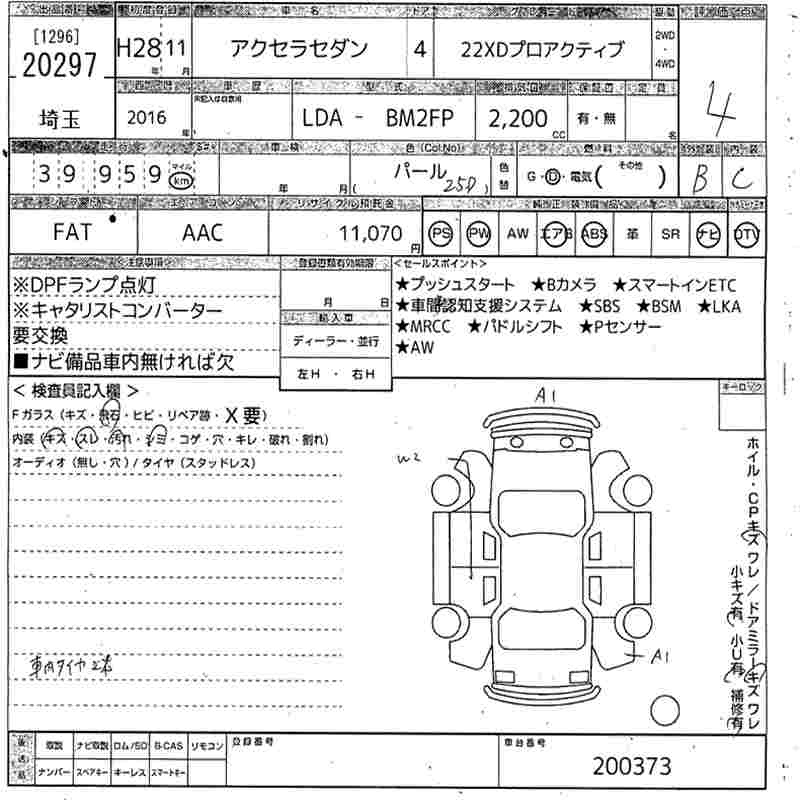 車名 ドア グレード
[1296]
20297
H28 11
年 月
アクセラセダン 4 22XDプロアクティブ
2WD
・
4WD
評価点
4
埼玉
2016
年
車歴 型式
LDA - BM2FP
2,200
CC
有・無
名
39 959
マイル
km
車検
年 月(
色(Col.No)
パール 25D )
色替
燃料
G・D・電気( その他 )
外装 内装
B C
FAT AAC
リサイクル預託金
11,070
円
PS PW AW エアB ABS 革 SR ナビ DTV
注意事項
※DPFランプ点灯
※キャタリストコンバーター
要交換
■ナビ備品車内無ければ欠
登録書類有効期限
月 日
輸入車
ディーラー・並行
左H ・ 右H
<セールスポイント>
★プッシュスタート ★Bカメラ ★スマートインETC
★車間認知支援システム ★SBS ★BSM ★LKA
★MRCC ★パドルシフト ★Pセンサー
★AW
< 検査員記入欄 >
Fガラス(キズ・飛石・ヒビ・リペア跡・X要)
内装(キズ・スレ・汚れ・シミ・コゲ・穴・キレ・破れ・割れ)
オーディオ(無し・穴)/タイヤ(スタッドレス)
車内タイヤ2本
A1
W2
A1
キーロック
ホイル・CPキズ ワレ/ドアミラーキズ ワレ
小キズ有 小U有 補修有
後送品
取説 ナビ取説 ロム/SD B-CAS リモコン
ナンバー スペアキー キーレス スマートキー
登録番号
車台番号
200373